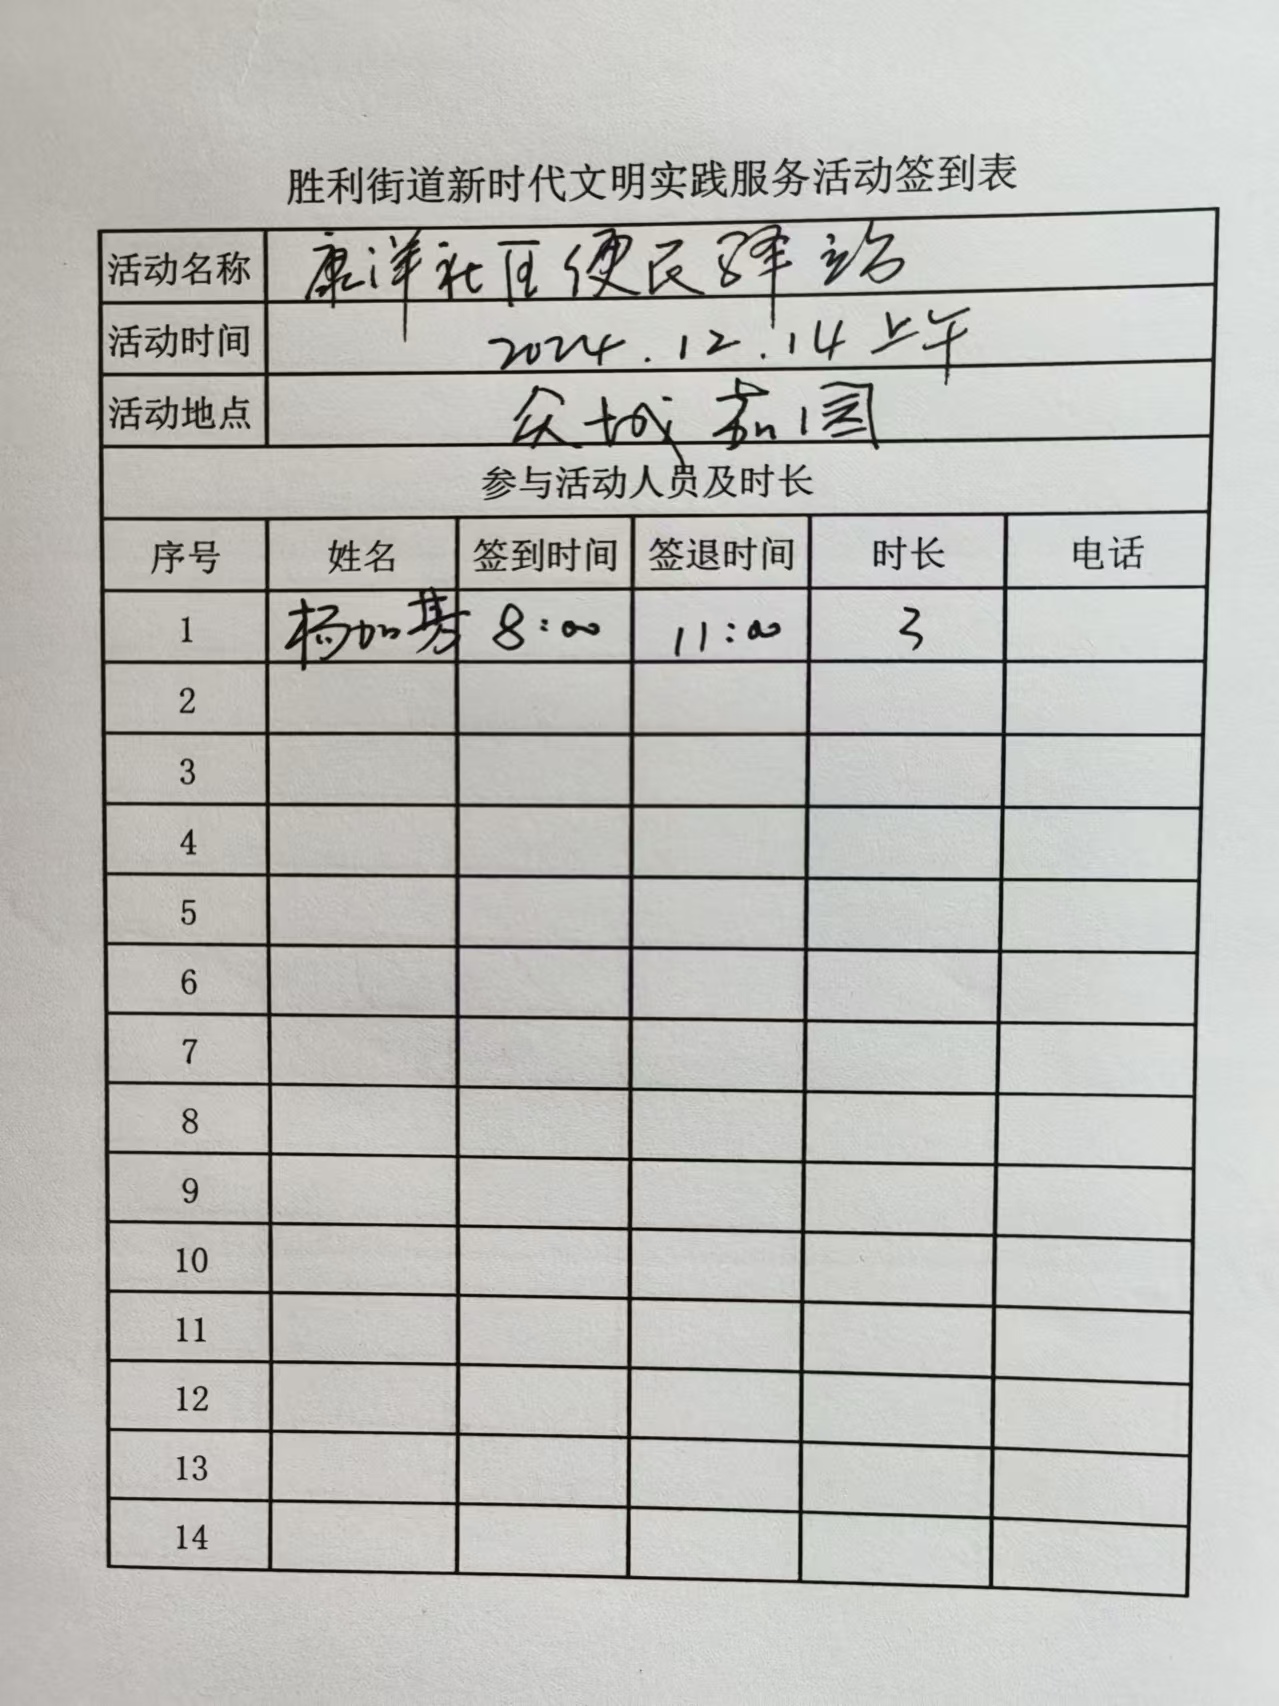 胜利街道新时代文明实践服务活动签到表
活动名称 康洋社区便民驿站
活动时间 2024.12.14上午
活动地点 众城嘉园
参与活动人员及时长
序号 姓名 签到时间 签退时间 时长 电话
1 杨加 8:00 11:00 3
2
3
4
5
6
7
8
9
10
11
12
13
14